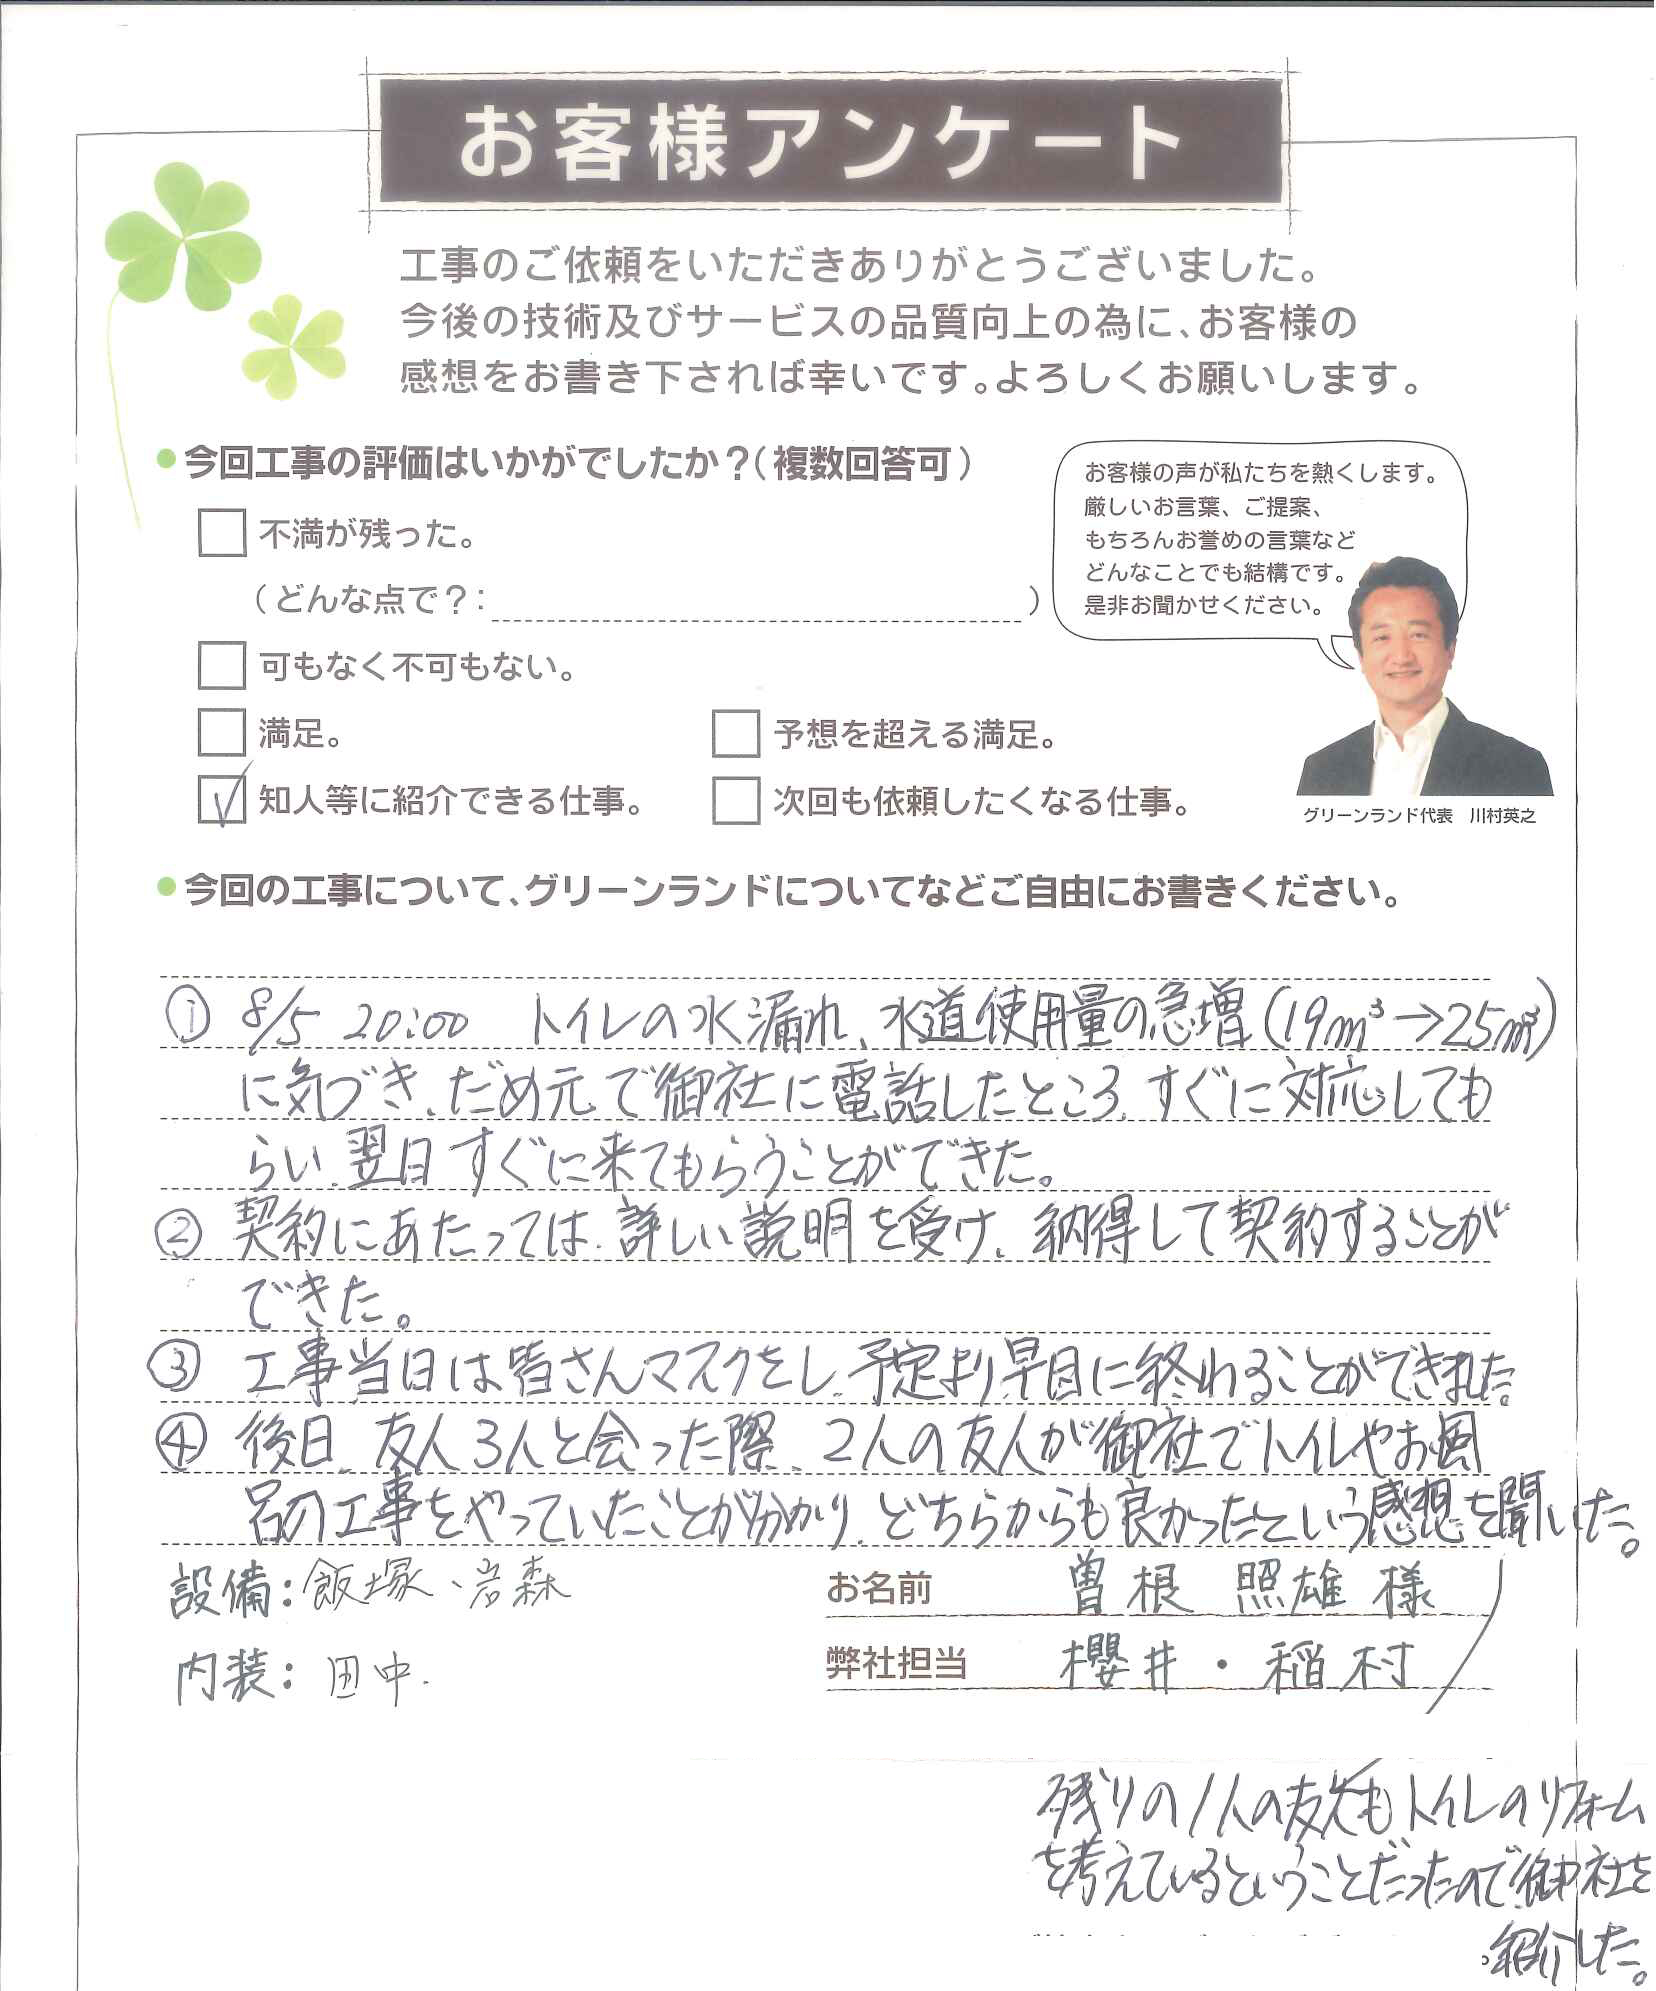 お客様アンケート
工事のご依頼をいただきありがとうございました。
今後の技術及びサービスの品質向上の為に、お客様の
感想をお書き下されば幸いです。よろしくお願いします。
今回工事の評価はいかがでしたか？(複数回答可)
お客様の声が私たちを熱くします。
厳しいお言葉、ご提案、
もちろんお誉めの言葉など
どんなことでも結構です。
是非お聞かせください。
不満が残った。
(どんな点で？: )
可もなく不可もない。
満足。
予想を超える満足。
知人等に紹介できる仕事。
次回も依頼したくなる仕事。
グリーンランド代表 川村英之
今回の工事について、グリーンランドについてなどご自由にお書きください。
① 8/5 20:00 トイレの水漏れ、水道使用量の急増(19m³→25m³)
に気づき、だめ元で御社に電話したところ、すぐに対応しても
らい、翌日すぐに来てもらうことができた。
② 契約にあたっては、詳しい説明を受け、納得して契約することが
できた。
③ 工事当日は皆さんマスクをし、予定より早目に終わることができました。
④ 後日、友人3人と会った際、2人の友人が御社でトイレやお風
呂の工事をやっていたことが分かり、どちらからも良かったという感想を聞いた。
設備：飯塚、岩森
お名前 曽根 照雄 様
内装：田中.
弊社担当 櫻井・稲村
残りの1人の友人もトイレのリフォーム
を考えているということだったので御社を
紹介した。